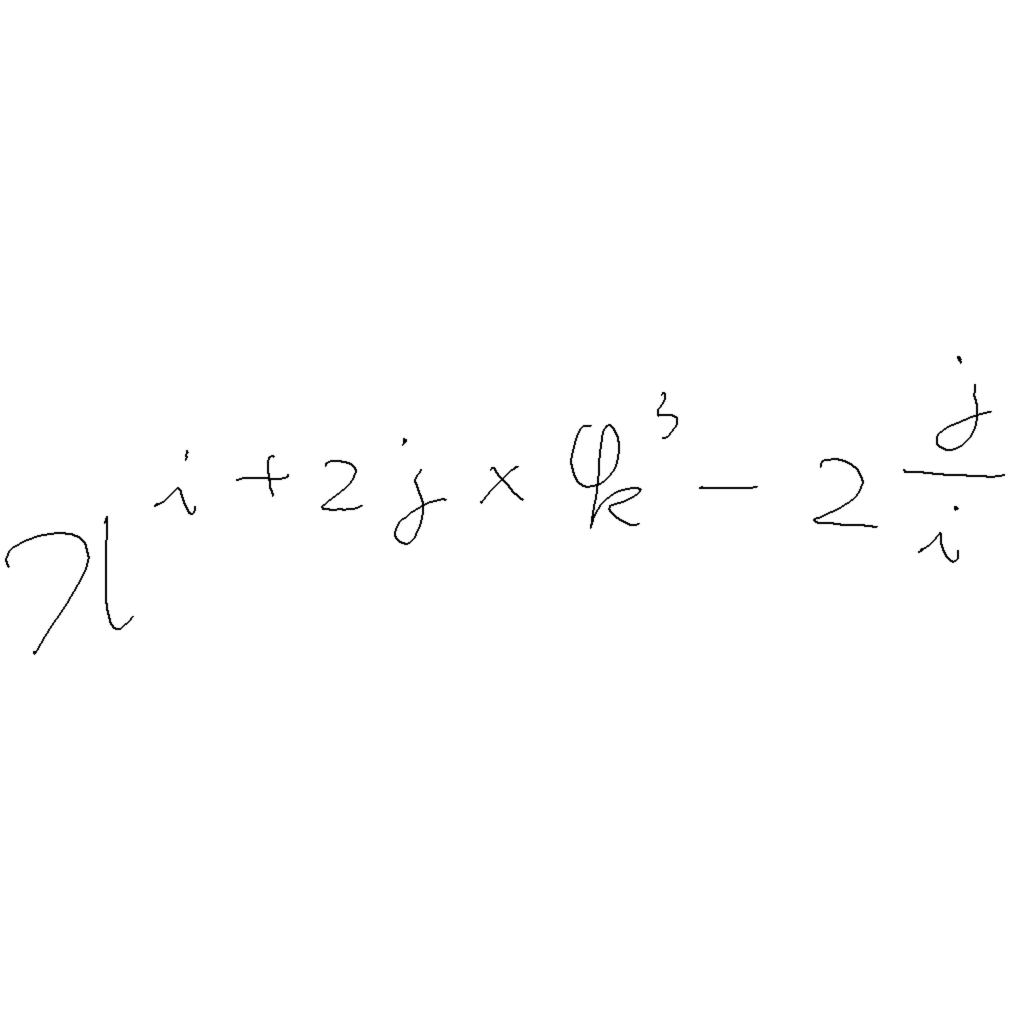 $x^{i+2j \times \varphi_k^3 - 2\frac{j}{i}}$